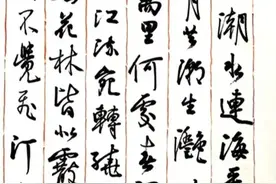 潮水連海平
月共潮生灩
萬里何處春
江流宛轉繞
花林皆似霰
不覺飛汀